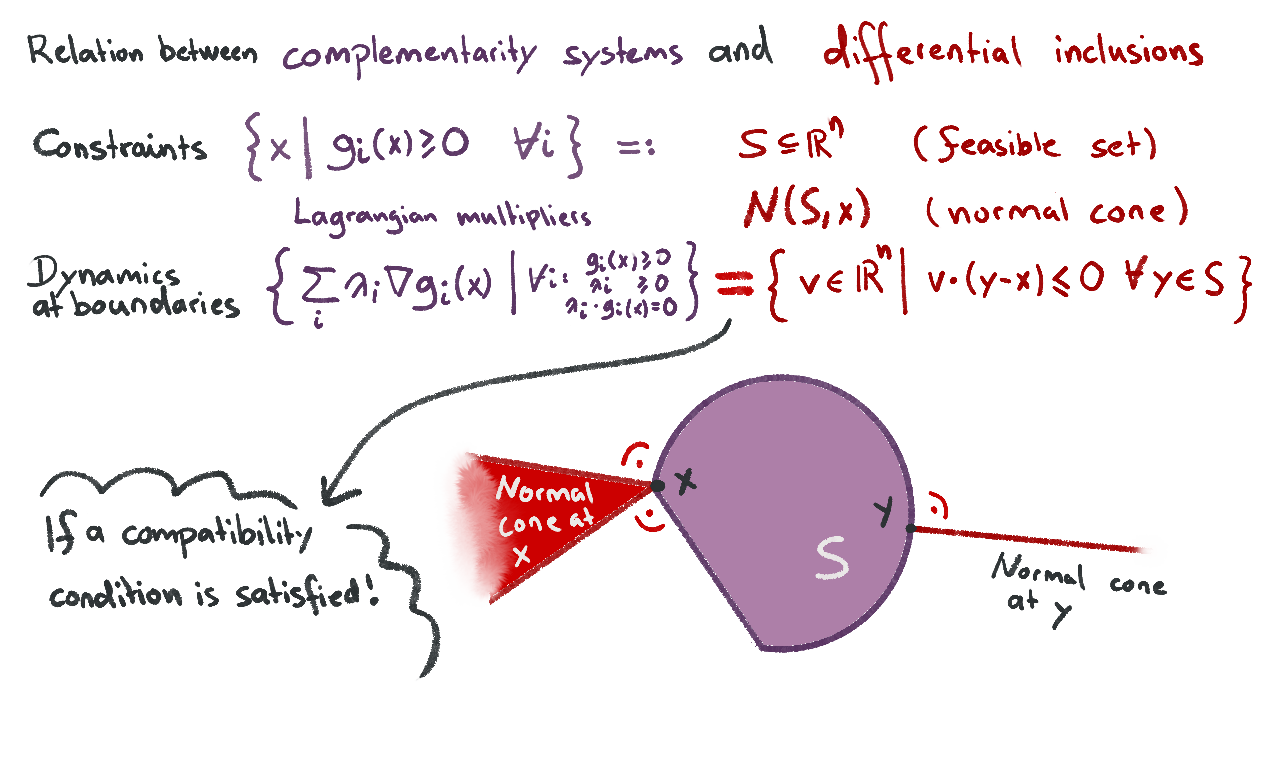 Relation between complementarity systems and differential inclusions
Constraints {x | gᵢ(x)⩾0 ∀i} =: S⊆ℝⁿ (feasible set)
Lagrangian multipliers N(S,x) (normal cone)
Dynamics at boundaries { ∑ᵢ λᵢ∇gᵢ(x) | ∀i: gᵢ(x)⩾0 λᵢ ⩾0 λᵢ·gᵢ(x)=0 } = { v∈ℝⁿ | v·(y-x)⩽0 ∀y∈S }
If a compatibility
condition is satisfied!
Normal
cone at
x
x
y
S
Normal cone
at y